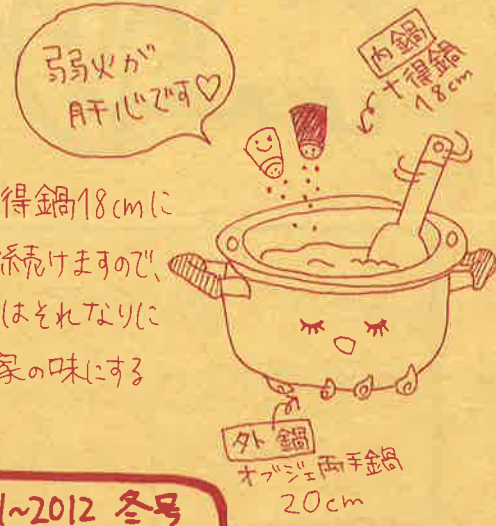 弱火が
肝心です♡
内鍋
十得鍋
18cm
得鍋18cmに
続けますので、
はそれなりに
家の味にする
外鍋
オブジェ両手鍋
20cm
1~2012 冬号